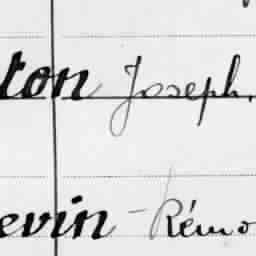 ton Joseph,
evin - Rémo